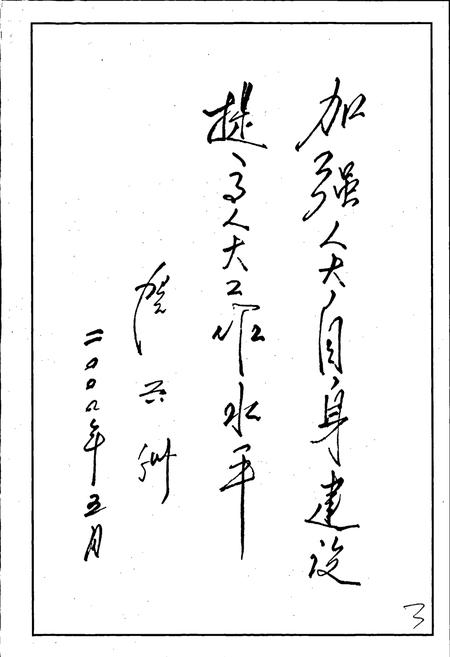 加强人大自身建设
提高人大工作水平
兴洲
二〇〇〇年五月
3